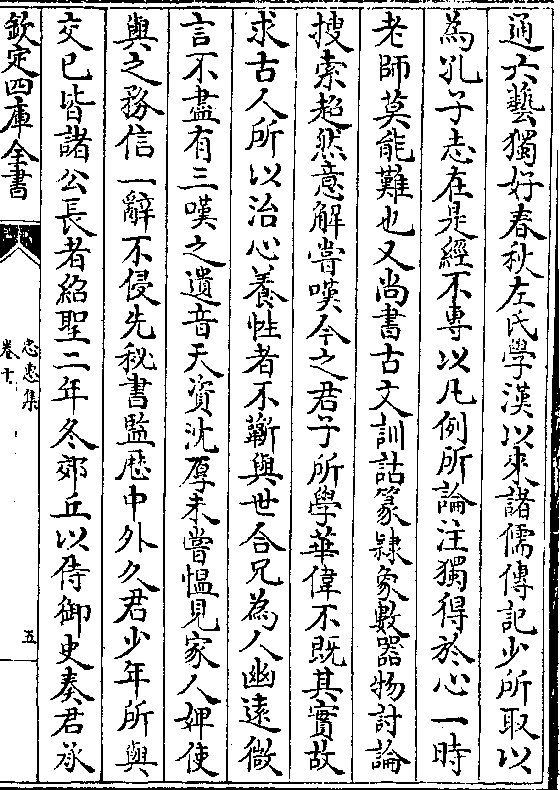 通六藝獨好春秋左氏學漢以來諸儒傳記少所取以
為孔子志在是經不專以凡例所論注獨得於心一時
老師莫能難也又尚書古文訓詁篆𨽻象數器物討論
搜索超然意解嘗嘆今之君子所學華偉不既其實故
求古人所以治心養性者不蘄與世合兄為人幽遠微
言不盡有三嘆之遺音天資沈厚未嘗愠見家人婢使
與之務信一辭不侵先秘書監歴中外久君少年所與
交已皆諸公長者紹聖二年冬郊丘以侍御史奏君承
欽定四庫全書
忠惠集
卷十
五